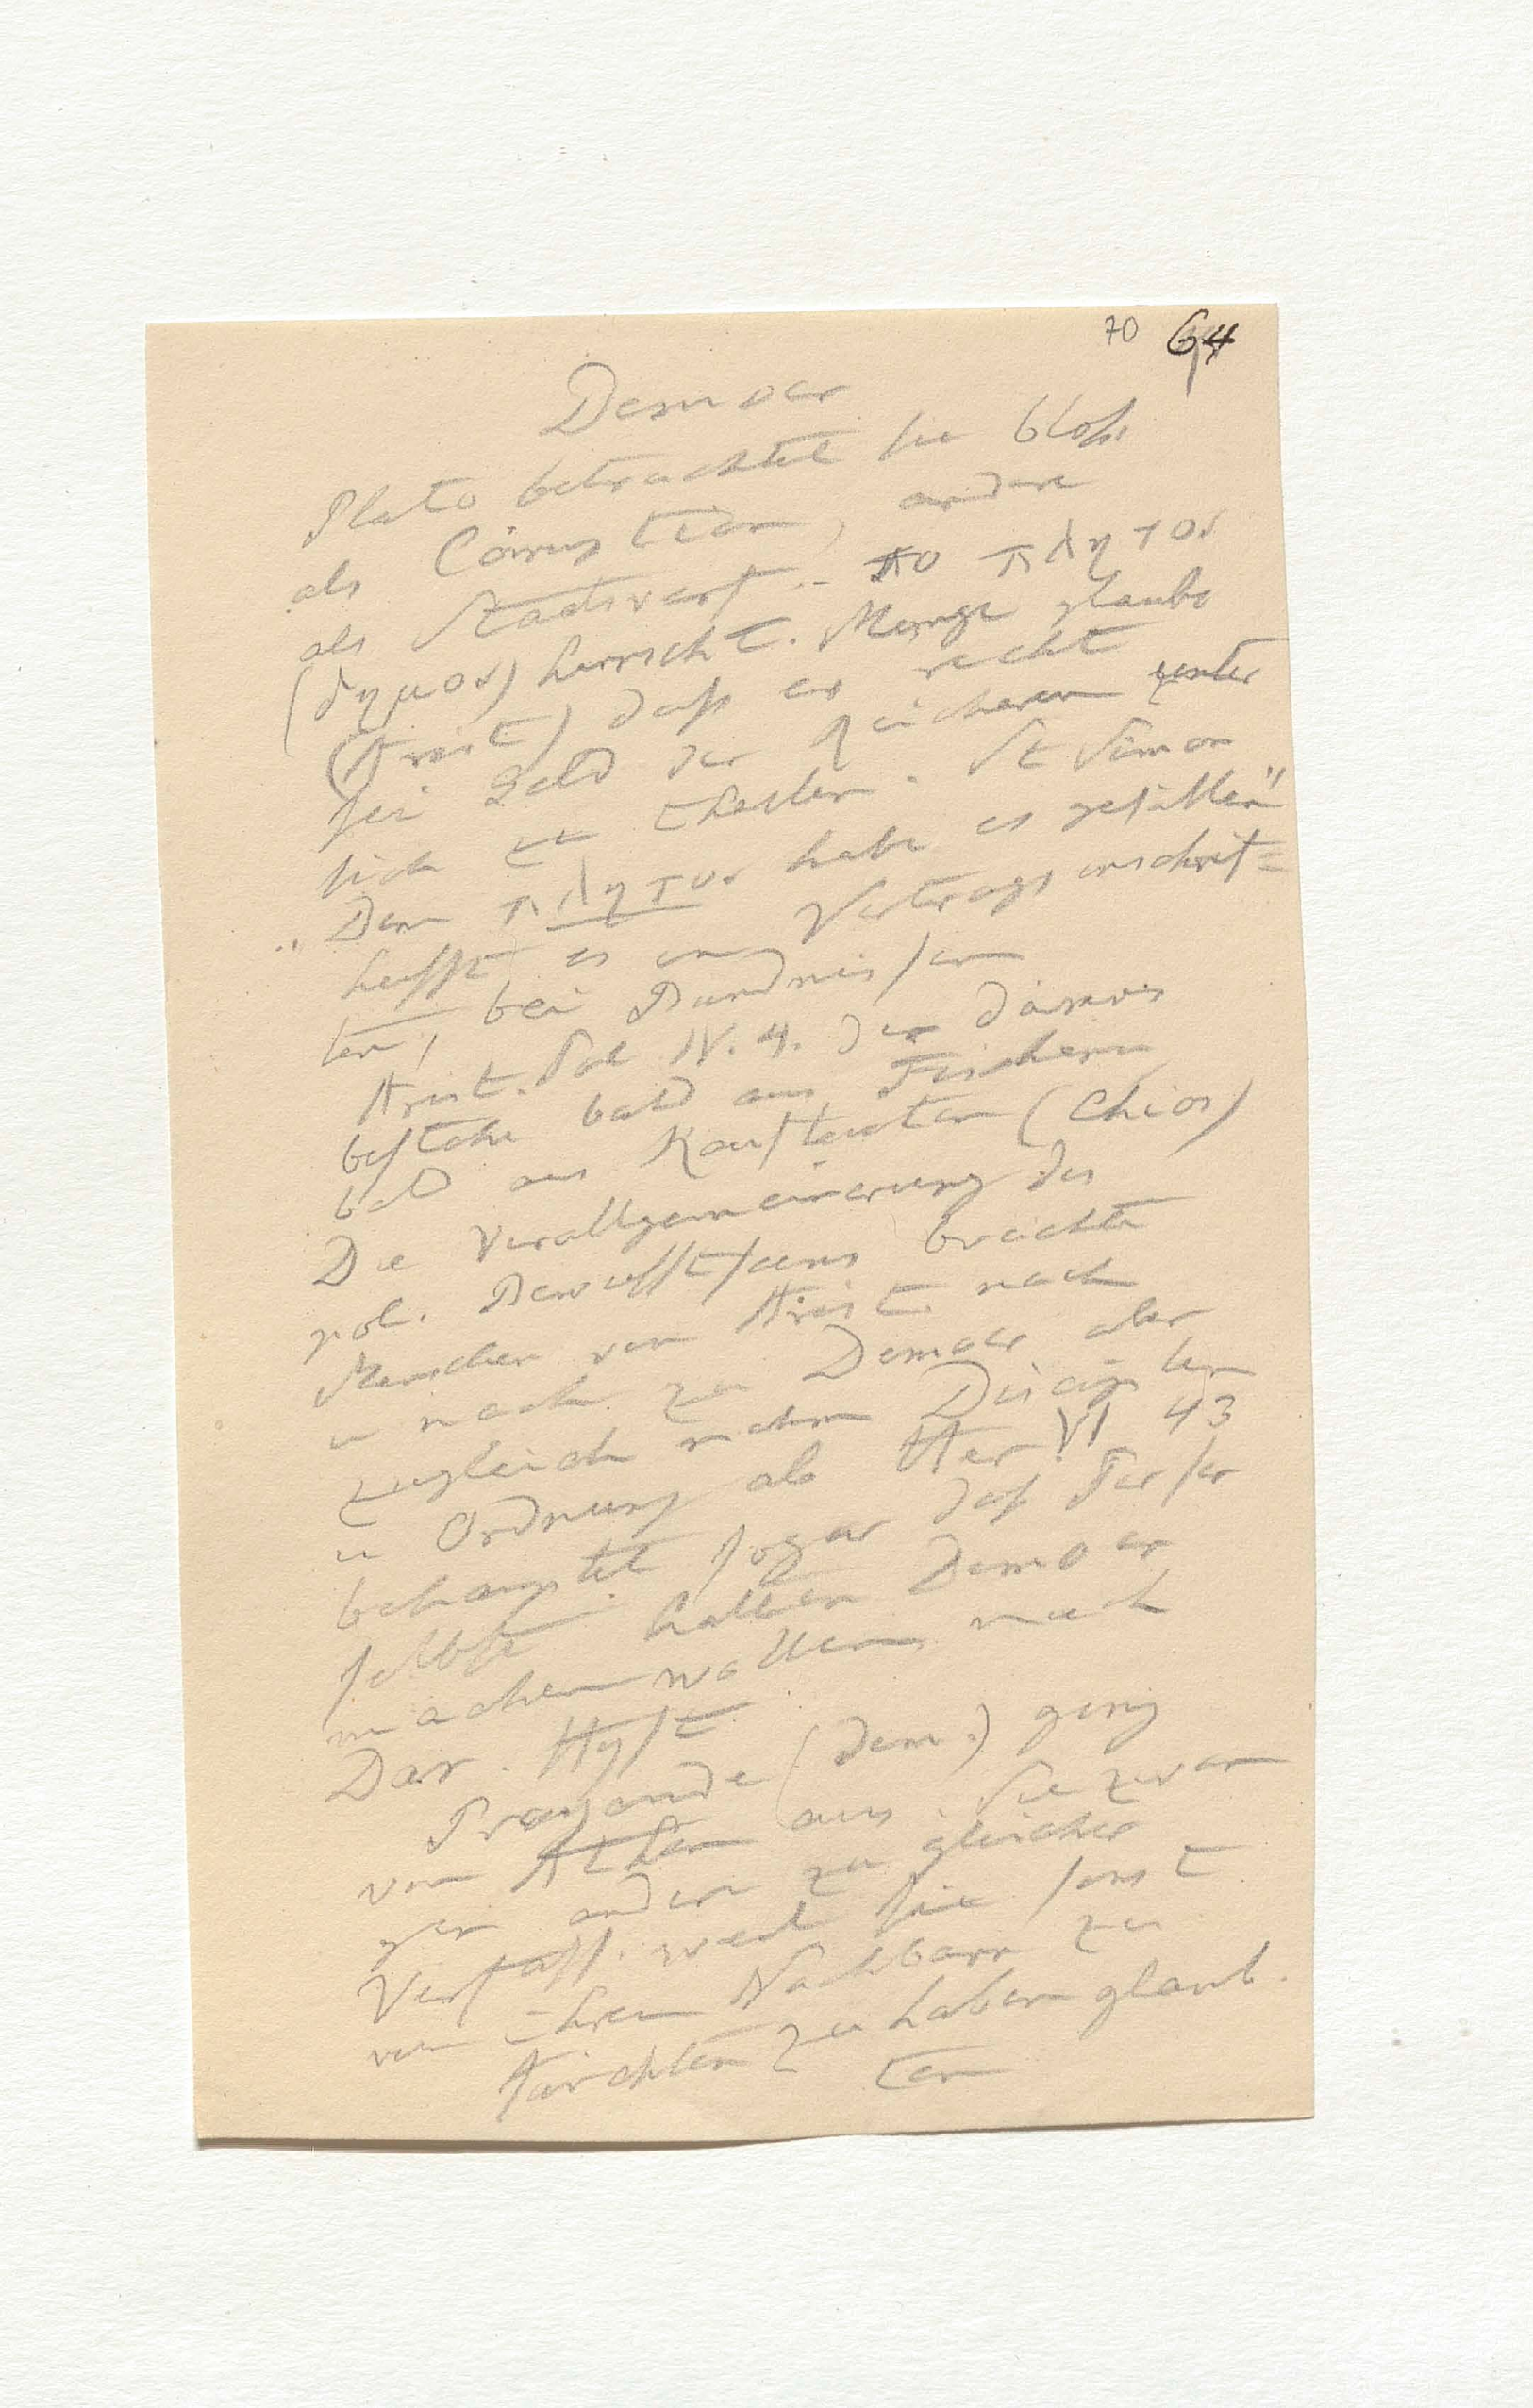 70 64
Democr
Plato betrachtet sie bloß
als Corruption, andere
als Staatsverf. - το πλητος
(δημος) herrscht. Menge glaube
(Arist) daß es recht
sei Geld der Reicheren unter
sich zu theilen. St Simon
"Dem πλητος habe es gefallen"
heißt es in Vertragsinschrif=
ten, bei Bündnissen
Arist. Pol IV. 4. der Demos
bestehe bald aus Fischern
bald aus Kaufleuten (Chios)
Die Verallgemeinerung des
pol. Bewußtseins brachte
Menschen von Arist. nach
u nach zu Democr aber
zugleich nahm Disciplin
u Ordnung ab Her VI 43
behauptet sogar daß Perser
selbst hatten Democr
machen wollen nach
Dar. Hyst
Propaganda (dem.) ging
von Athen aus. Sie zwan
gen andere zu gleicher
Verfass. weil sie sonst
von ihren Nachbarn zu
fürchten zu haben glaub.
ten